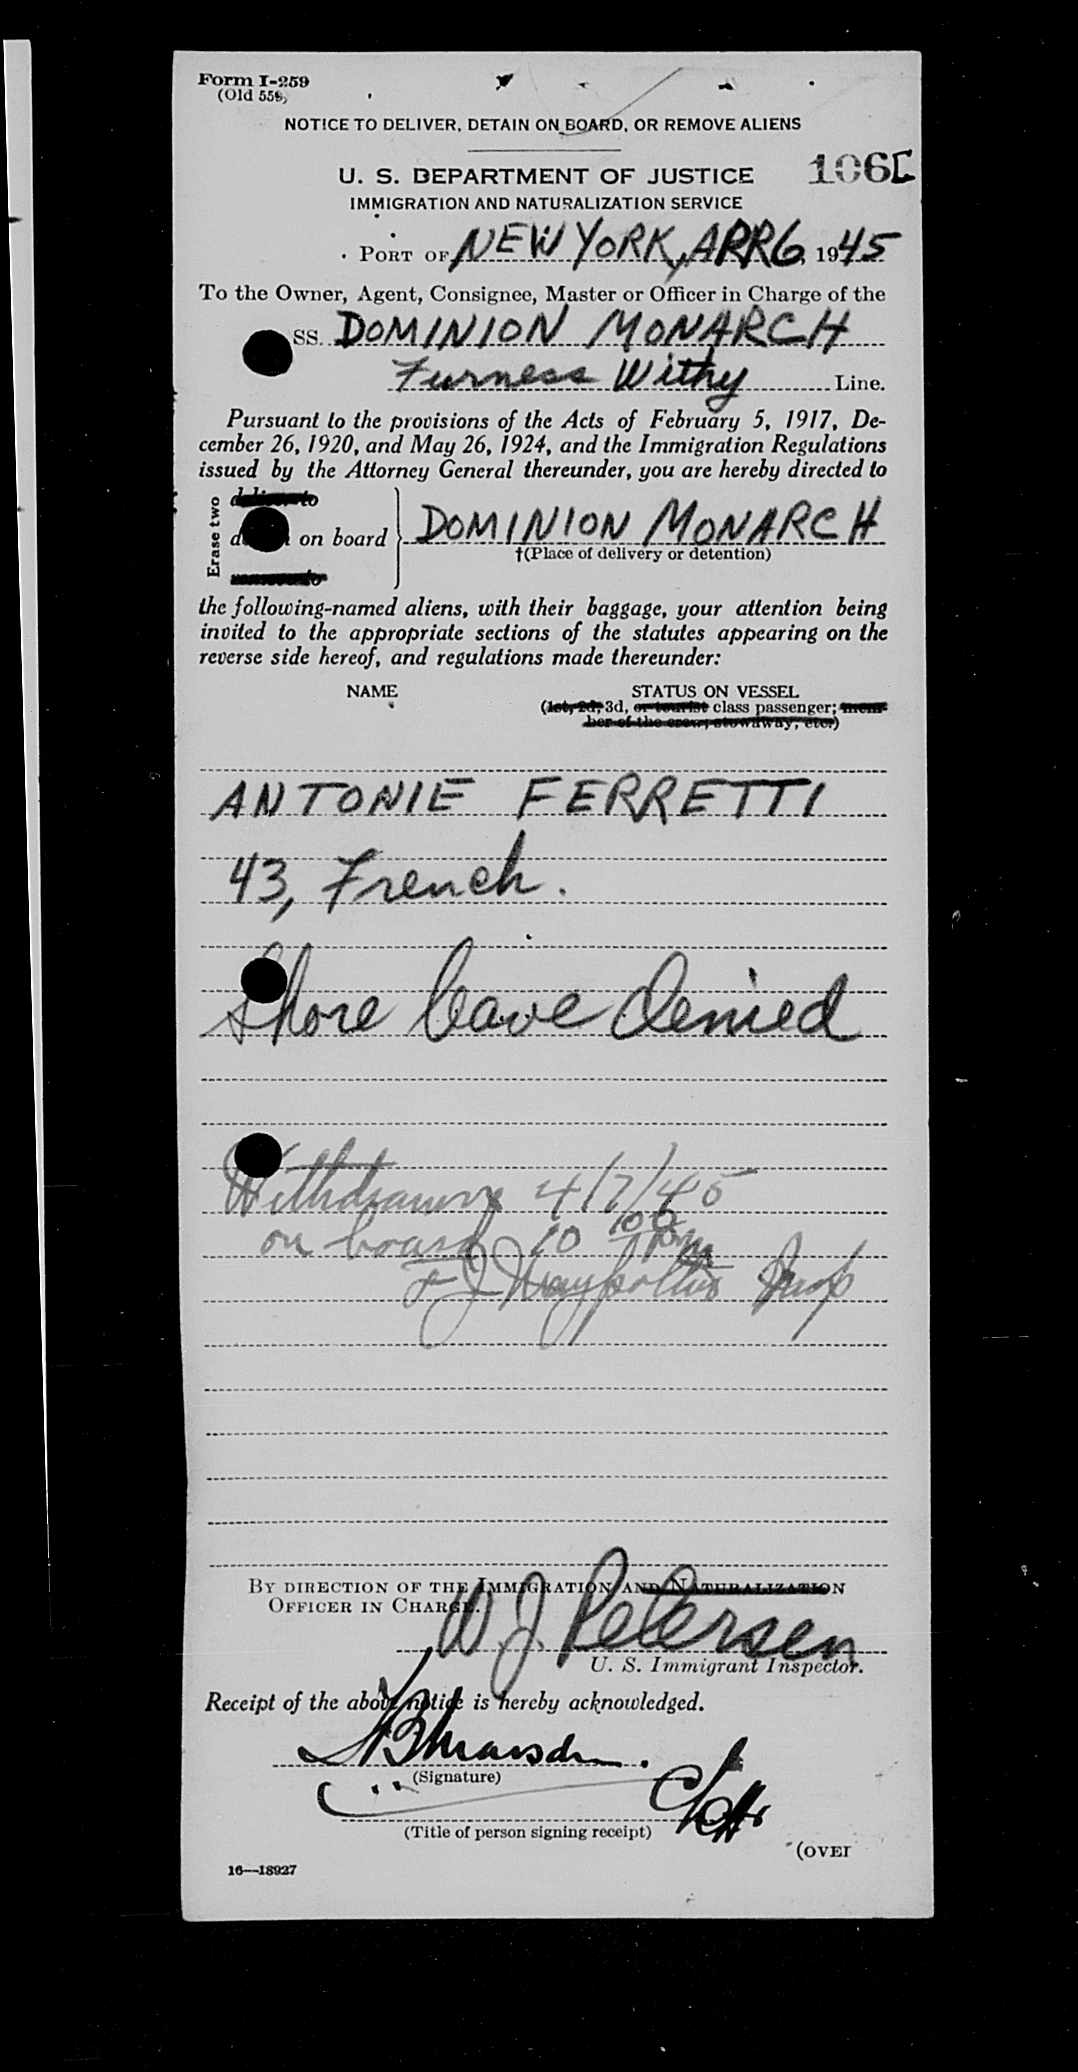 Form I-259
(Old 559)
NOTICE TO DELIVER, DETAIN ON BOARD, OR REMOVE ALIENS
106C
U. S. DEPARTMENT OF JUSTICE
IMMIGRATION AND NATURALIZATION SERVICE
PORT OF NEW YORK, APR 6, 1945
To the Owner, Agent, Consignee, Master or Officer in Charge of the
SS. DOMINION MONARCH
Furness Withy Line.
Pursuant to the provisions of the Acts of February 5, 1917, De-
cember 26, 1920, and May 26, 1924, and the Immigration Regulations
issued by the Attorney General thereunder, you are hereby directed to
Erase two
deliver to
on board DOMINION MONARCH
†(Place of delivery or detention)
remove to
the following-named aliens, with their baggage, your attention being
invited to the appropriate sections of the statutes appearing on the
reverse side hereof, and regulations made thereunder:
NAME STATUS ON VESSEL
(1st, 2d, 3d, or tourist class passenger; mem-
ber of the crew, stowaway, etc.)
ANTONIE FERRETTI
43, French.
Shore leave denied
Withdrawn 4/7/45
on board 10 pm
Insp
BY DIRECTION OF THE IMMIGRATION AND NATURALIZATION
OFFICER IN CHARGE.
W. J. Petersen
U. S. Immigrant Inspector.
Receipt of the above notice is hereby acknowledged.
(Signature)
(Title of person signing receipt)
(OVER
16—18927